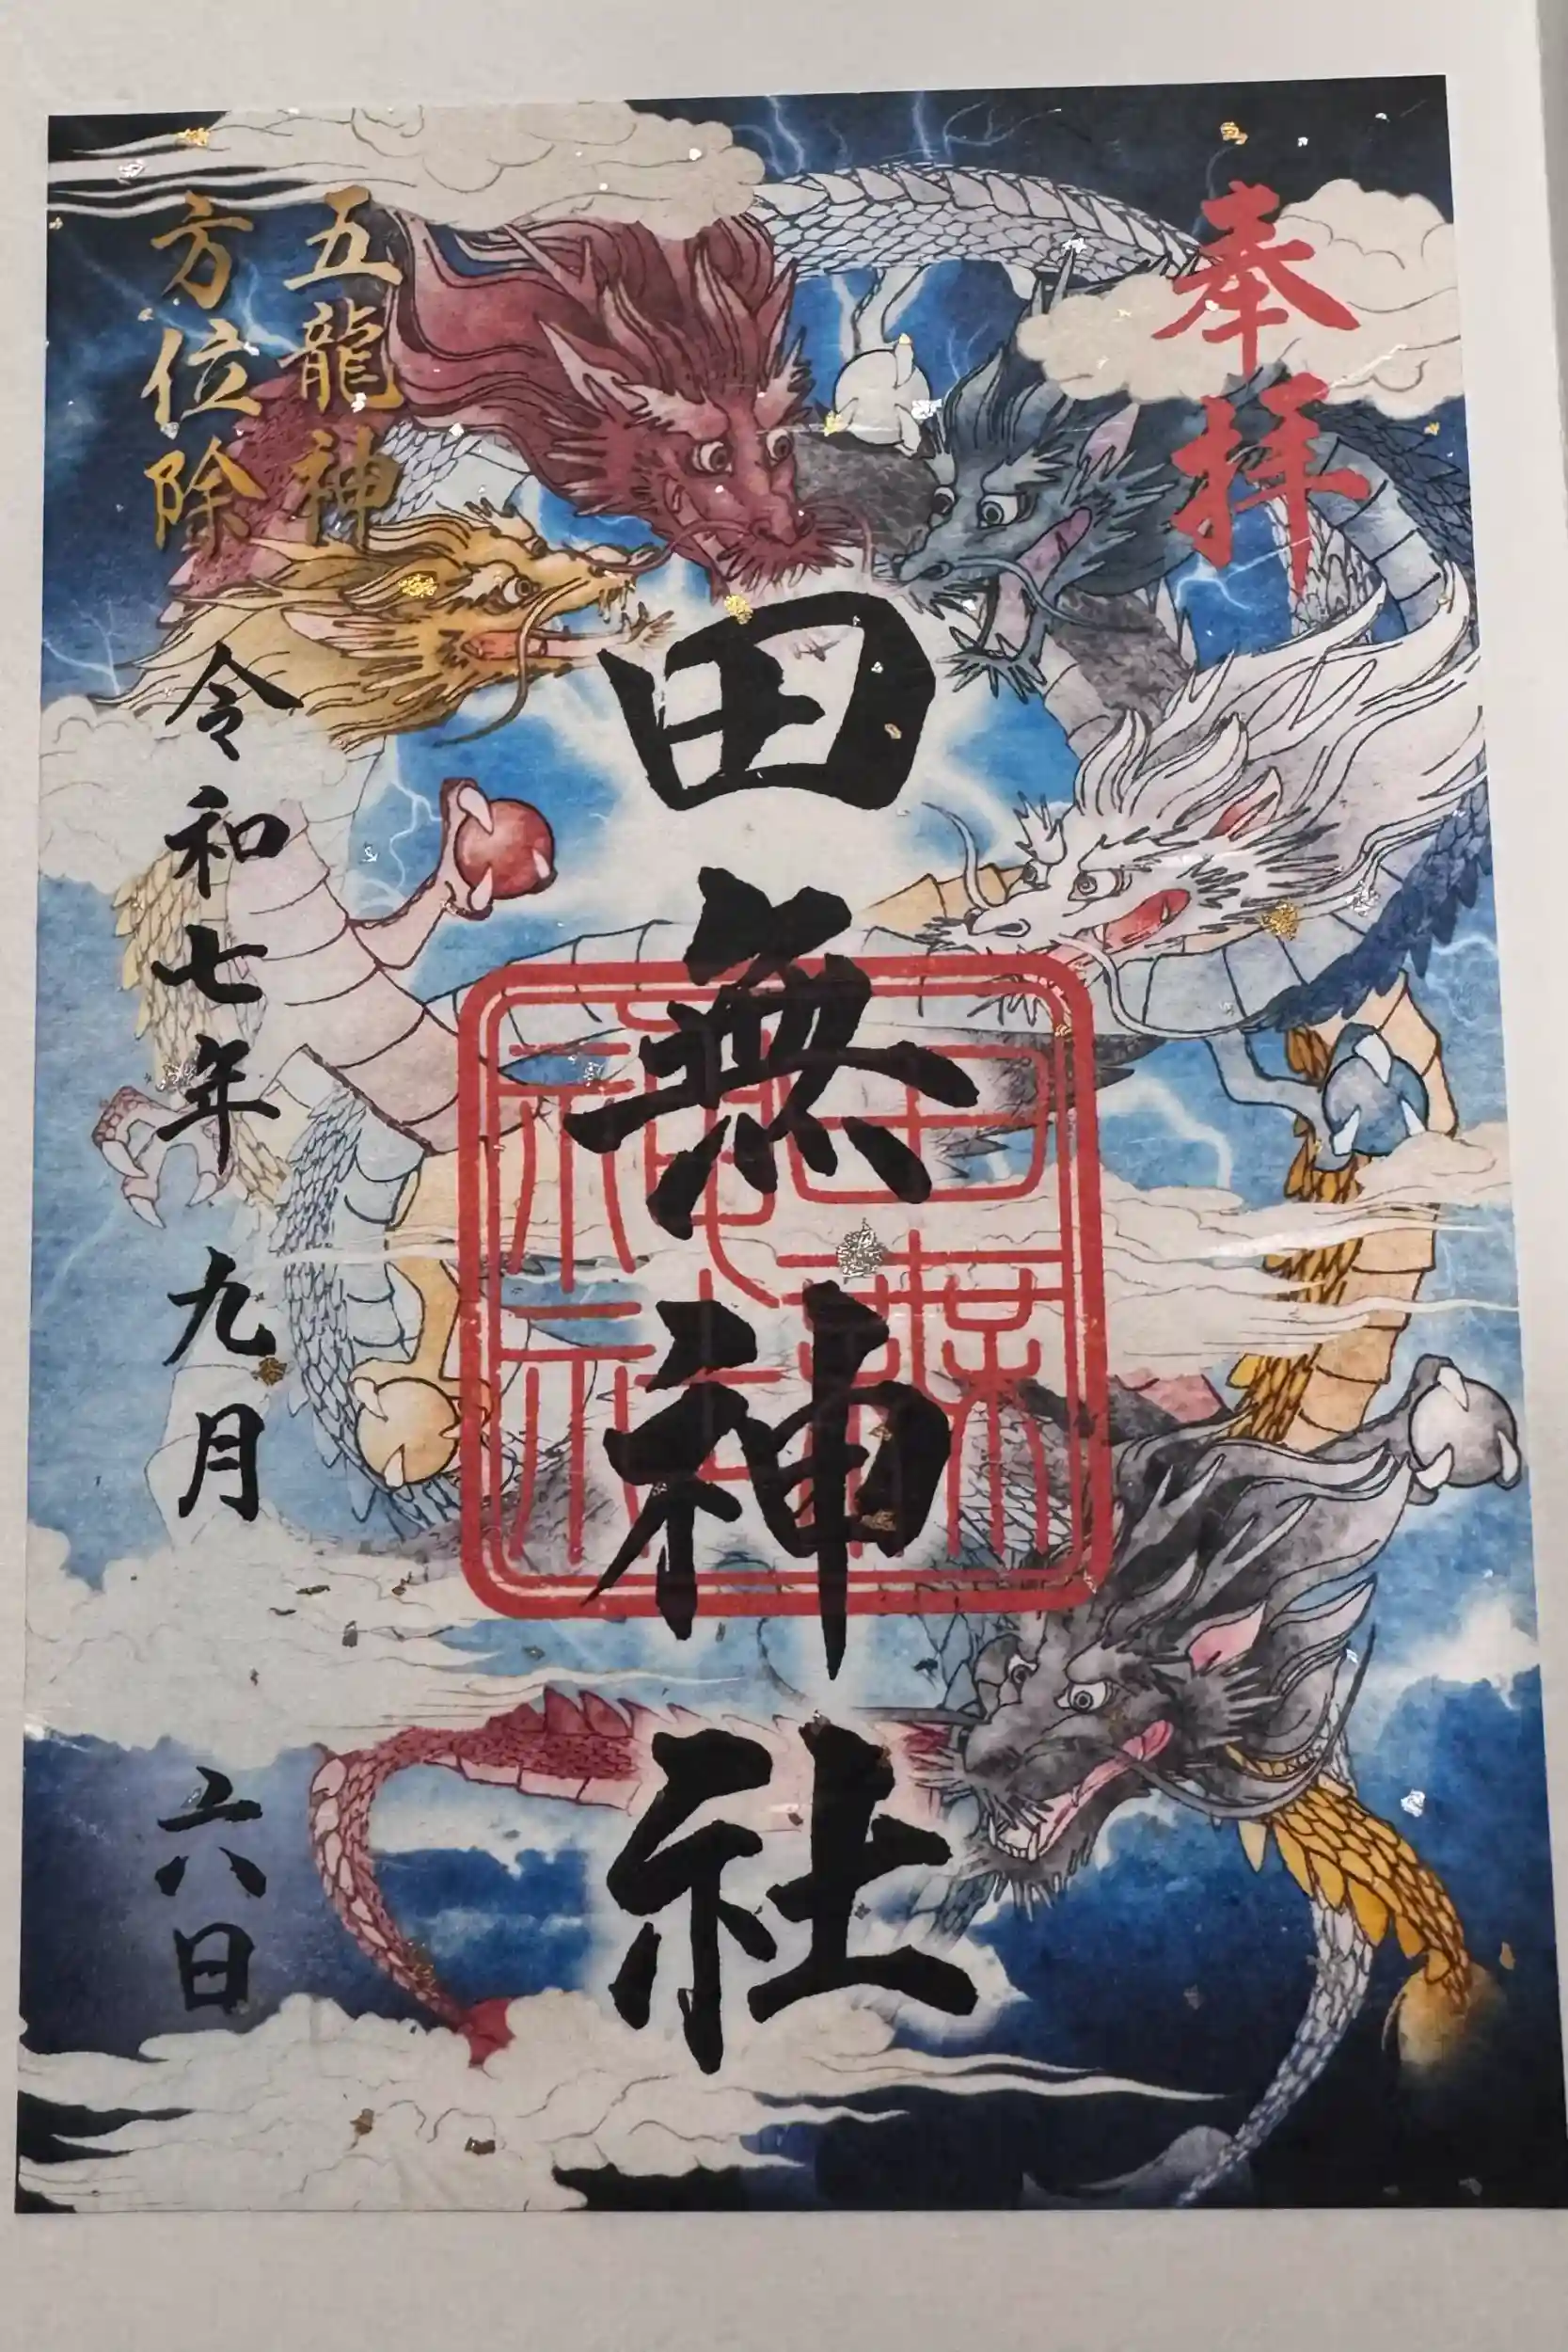 奉拝
田無神社
田無神社
五龍神
方位除
令和七年九月六日